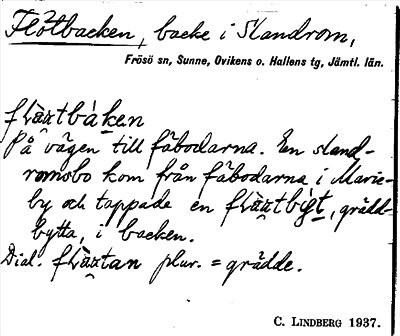 Flötbacken, backe i Slandrom,
Frösö sn, Sunne, Ovikens o. Hallens tg, Jämtl. län.
flàxtbàken
På vägen till fäbodarna. En sland-
romsbo kom från fäbodarna i Marie-
by och tappade en flàxtbýt, grädd-
bytta, i backen.
Dial. flàxtan plur. = grädde.
C. LINDBERG 1937.